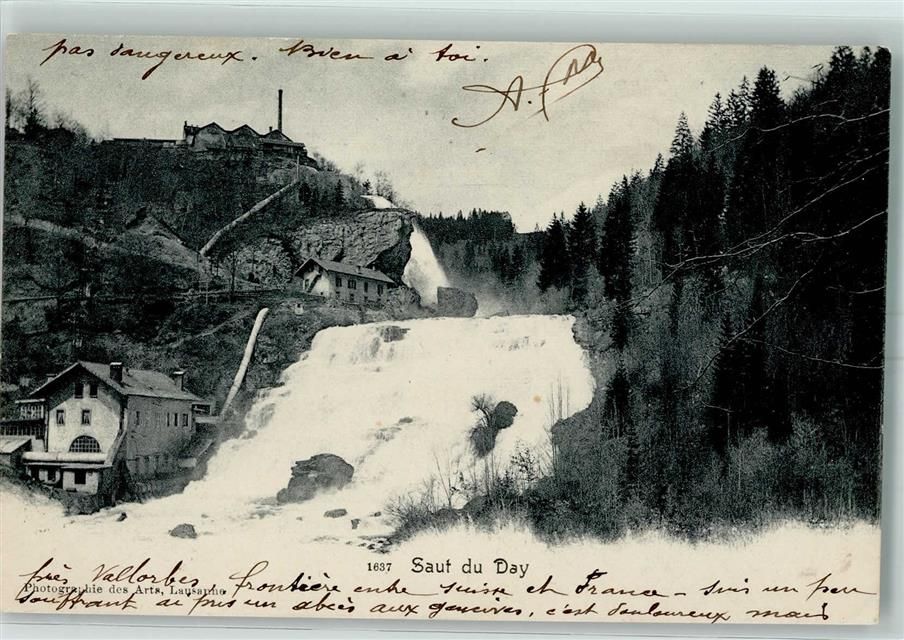 pas dangereux. Bien à toi.
1637 Saut du Day
Photographie des Arts, Lausanne
près Vallorbes. Frontière entre Suisse et France - suis un peu
souffrant ai pris un abcès aux gencives, c'est douloureux mais